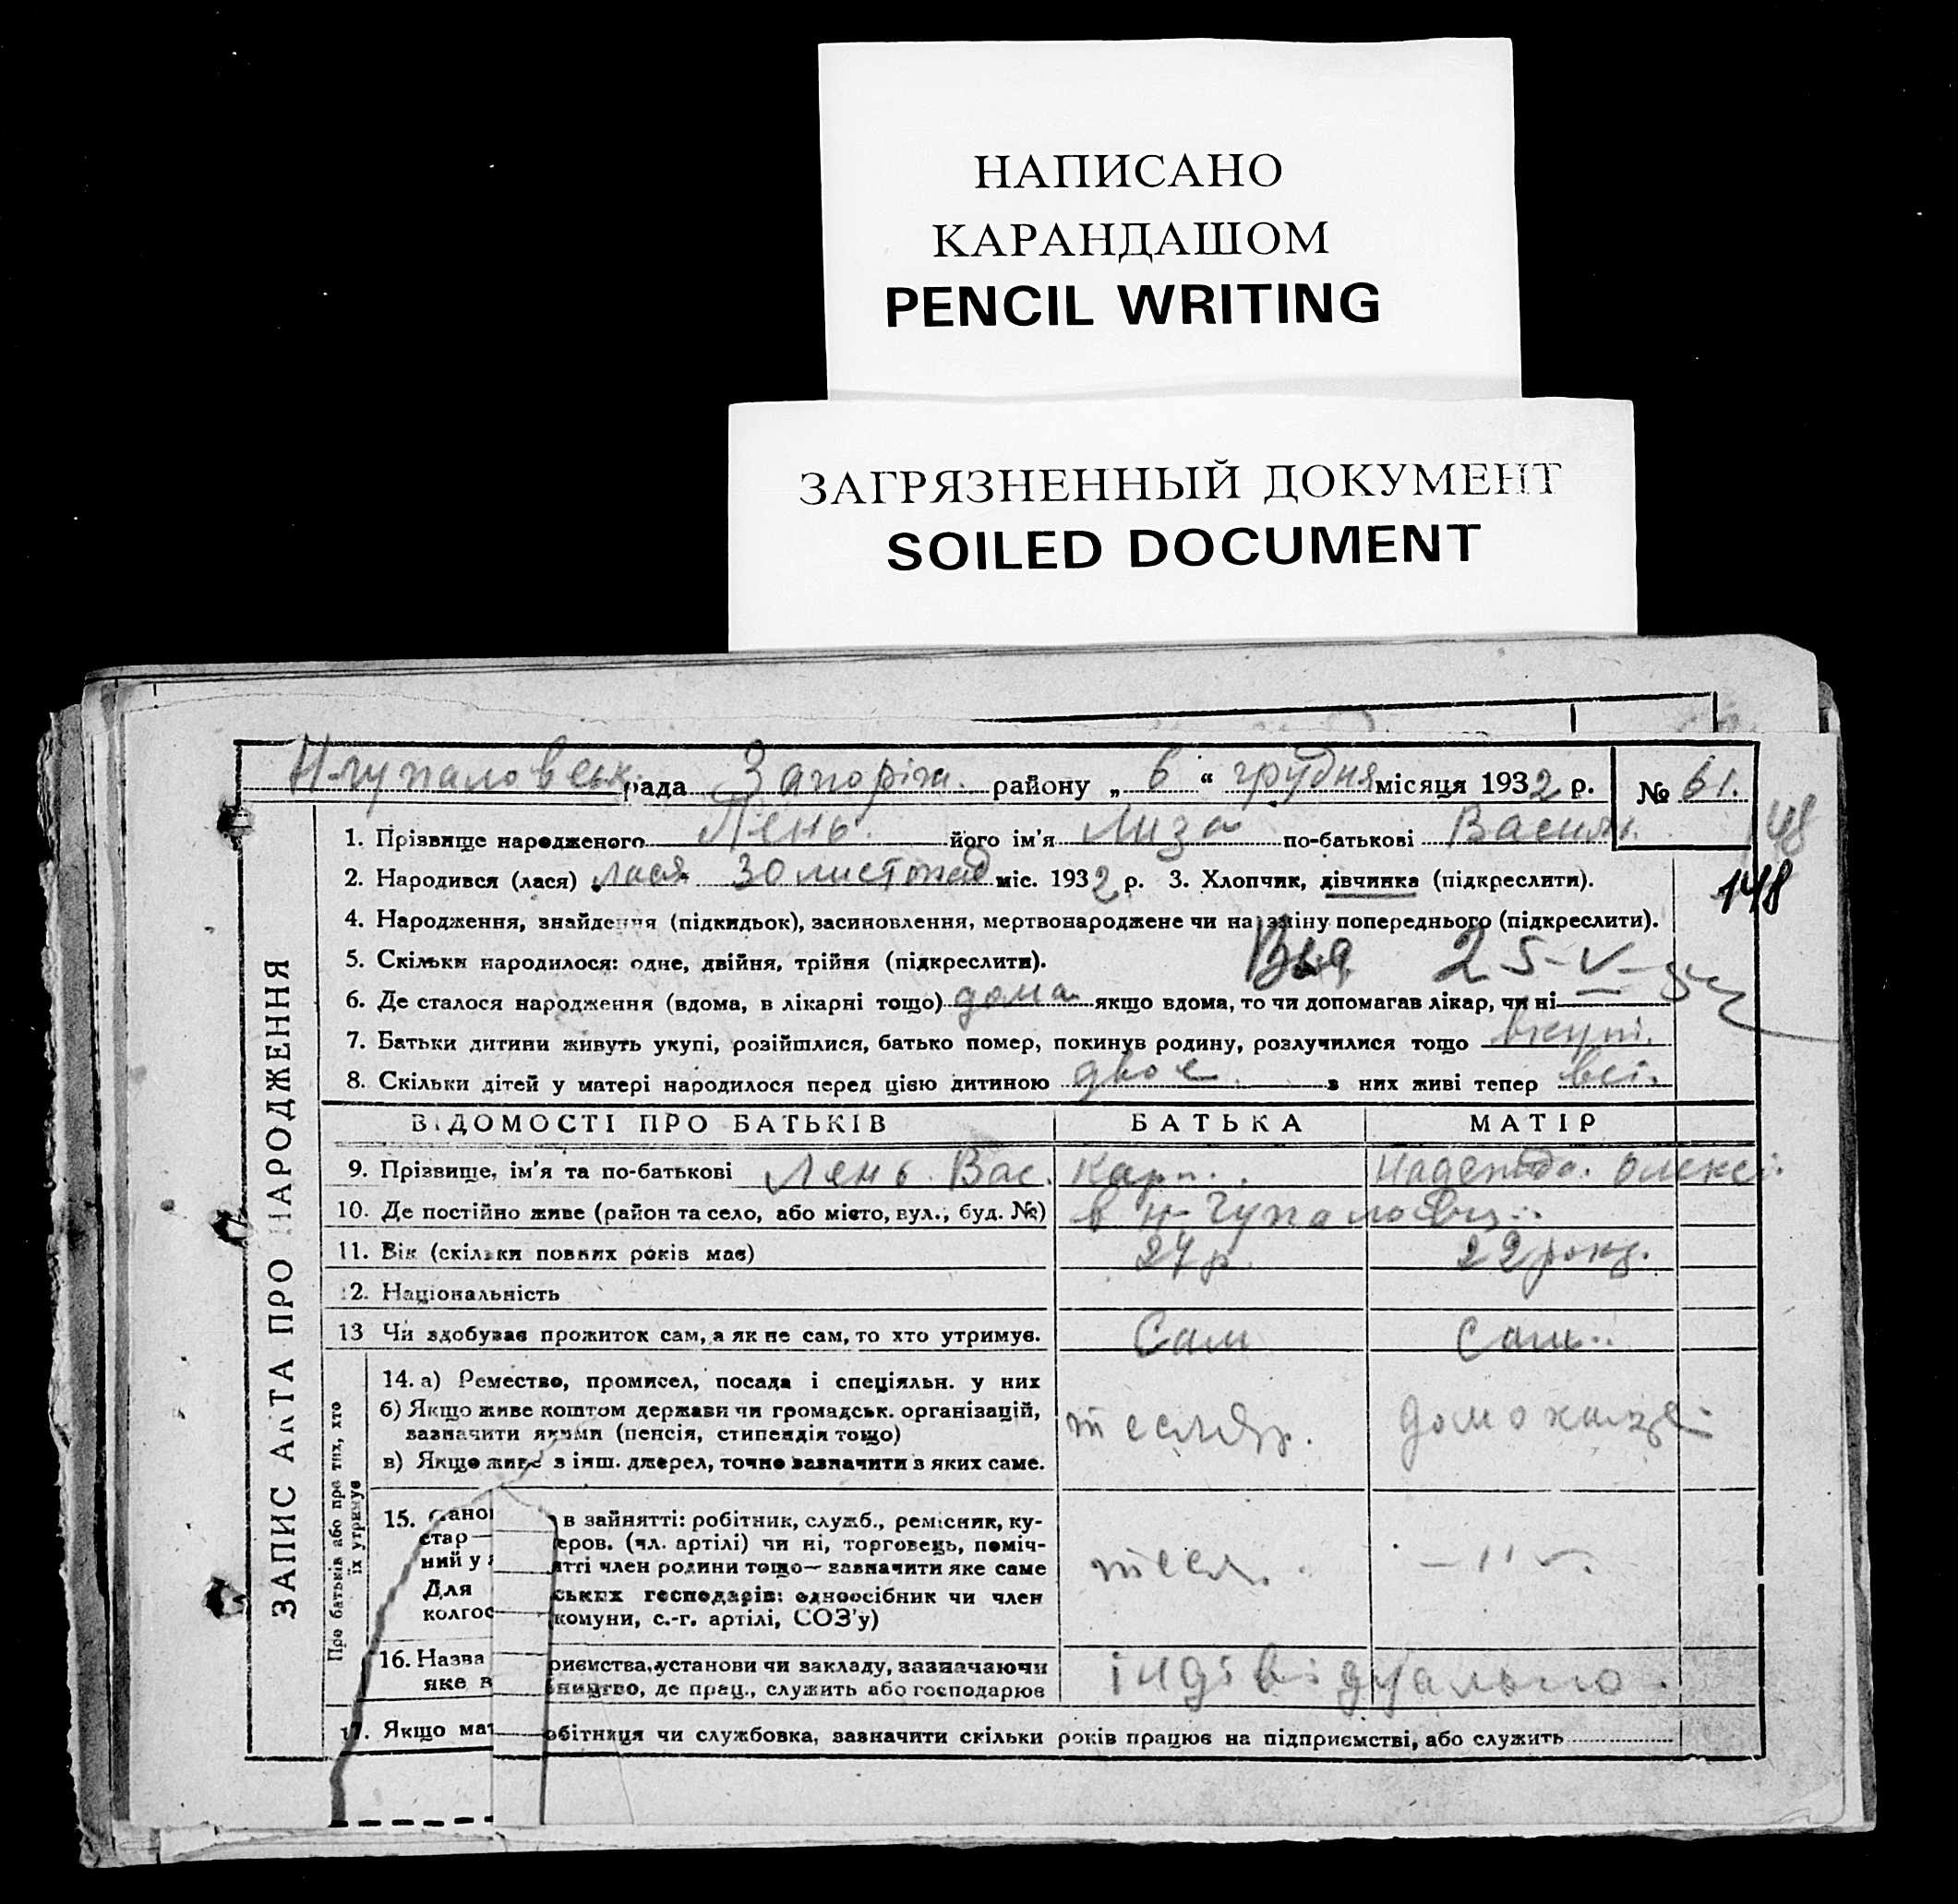 НАПИСАНО
КАРАНДАШОМ
PENCIL WRITING
ЗАГРЯЗНЕННЫЙ ДОКУМЕНТ
SOILED DOCUMENT
рада Запоріж. району „ 6 “ грудня місяця 1932 р. № 61.
1. Прізвище народженого Лень його ім'я Лиза по-батькові Василь.
148
2. Народився (лася) лася 30 листопад міс. 1932 р. 3. Хлопчик, дівчинка (підкреслити).
148
4. Народження, знайдення (підкидьок), засиновлення, мертвонароджене чи на зміну попереднього (підкреслити).
5. Скільки народилося: одне, двійня, трійня (підкреслити).
25-V-
6. Де сталося народження (вдома, в лікарні тощо) дома якщо вдома, то чи допомагав лікар, чи ні
7. Батьки дитини живуть укупі, розійшлися, батько помер, покинув родину, розлучилися тощо вкупі.
8. Скільки дітей у матері народилося перед цією дитиною двоє з них живі тепер всі.
ЗАПИС АКТА ПРО НАРОДЖЕННЯ
ВІДОМОСТІ ПРО БАТЬКІВ БАТЬКА МАТІР
9. Прізвище, ім'я та по-батькові Лень Вас. Карп. Надежда. Олексі.
10. Де постійно живе (район та село, або місто, вул., буд. №) в Н-
11. Вік (скільки повних років має) 24 р. 22 рокі.
12. Національність
13 Чи здобуває прожиток сам, а як не сам, то хто утримує. Сам Сам..
Про батьків або про тих, хто
їх утримує
14. а) Ремество, промисел, посада і спеціяльн. у них
б) Якщо живе коштом держави чи громадськ. організацій,
зазначити якими (пенсія, стипендія тощо)
тесляр.
в) Якщо живе з інш. джерел, точно зазначити з яких саме.
15. Стано в зайнятті: робітник, служб., ремісник, ку-
стар еров. (чл. артілі) чи ні, торговець, поміч-
ний у ятті член родини тощо—зазначити яке саме
тесл. - '' -
Для ських господарів: одноосібник чи член
колгос (комуни, с.-г. артілі, СОЗ'у)
16. Назва риємства, установи чи закладу, зазначаючи
яке в бництво, де прац., служить або господарює
індівідуально.
17. Якщо мат обітниця чи службовка, зазначити скільки років працює на підприємстві, або служить